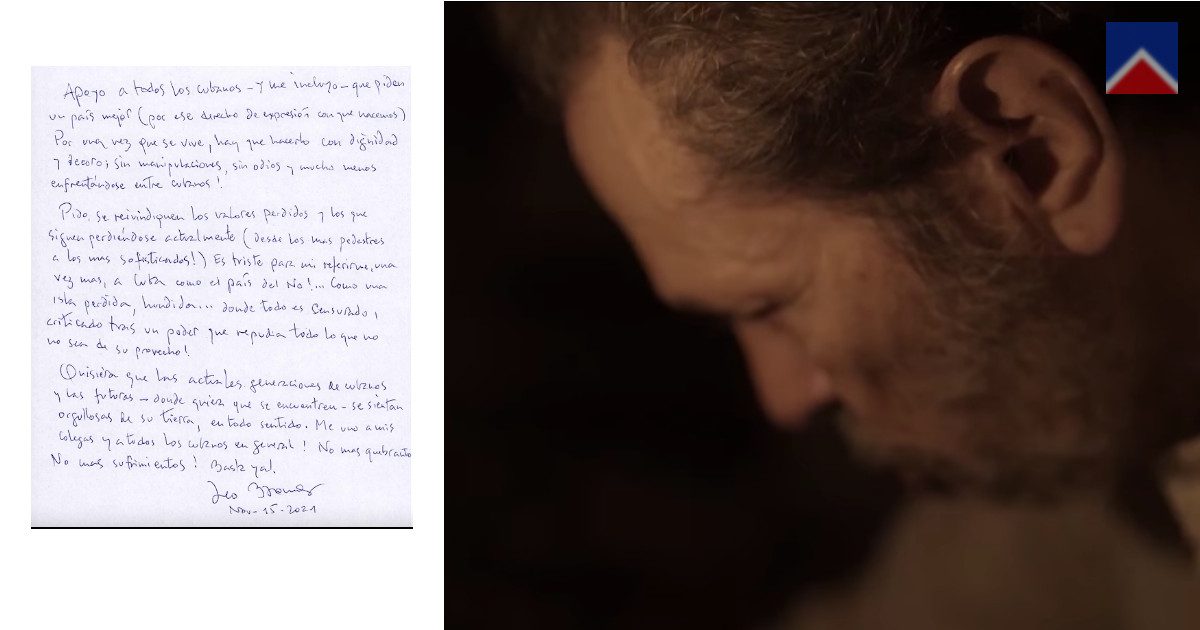 Apoyo a todos los cubanos - y me incluyo - que piden
un país mejor (por ese derecho de expresión con que nacemos)
Por una vez que se vive, hay que hacerlo con dignidad
y decoro; sin manipulaciones, sin odios y mucho menos
enfrentándose entre cubanos!
Pido, se reivindiquen los valores perdidos y los que
siguen perdiéndose actualmente (desde los mas pedestres
a los mas sofisticados!) Es triste para mi referirme, una
vez mas, a Cuba como el país del No!... Como una
isla perdida, hundida... donde todo es censurado,
criticado tras un poder que repudia todo lo que no
no sea de su provecho!
Quisiera que las actuales generaciones de cubanos
y las futuras - donde quiera que se encuentren - se sientan
orgullosas de su tierra, en todo sentido. Me uno a mis
colegas y a todos los cubanos en general! No mas quebranto
No mas sufrimientos! Basta ya!.
Leo Brouwer
Nov-15-2021